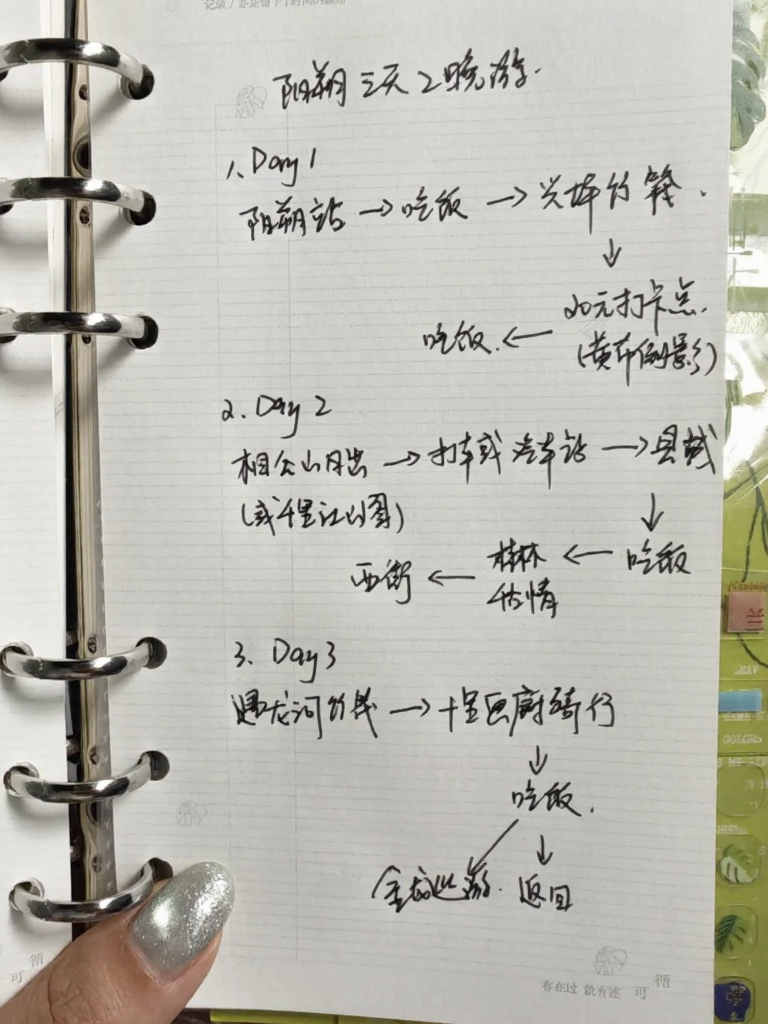 阳朔三天2晚游.
1. Day 1
阳朔站 → 吃饭 → 兴坪竹筏.
↓
20元打卡点.
吃饭. ← (黄布倒影)
2. Day 2
相公山日出 → 打车或汽车站 → 县城
(或千里江山图)
↓
西街 ← 桂林千古情 ← 吃饭
3. Day 3
遇龙河竹筏 → 十里画廊骑行
↓
吃饭.
↙ ↓
返回
存在过 就有迹 可 循